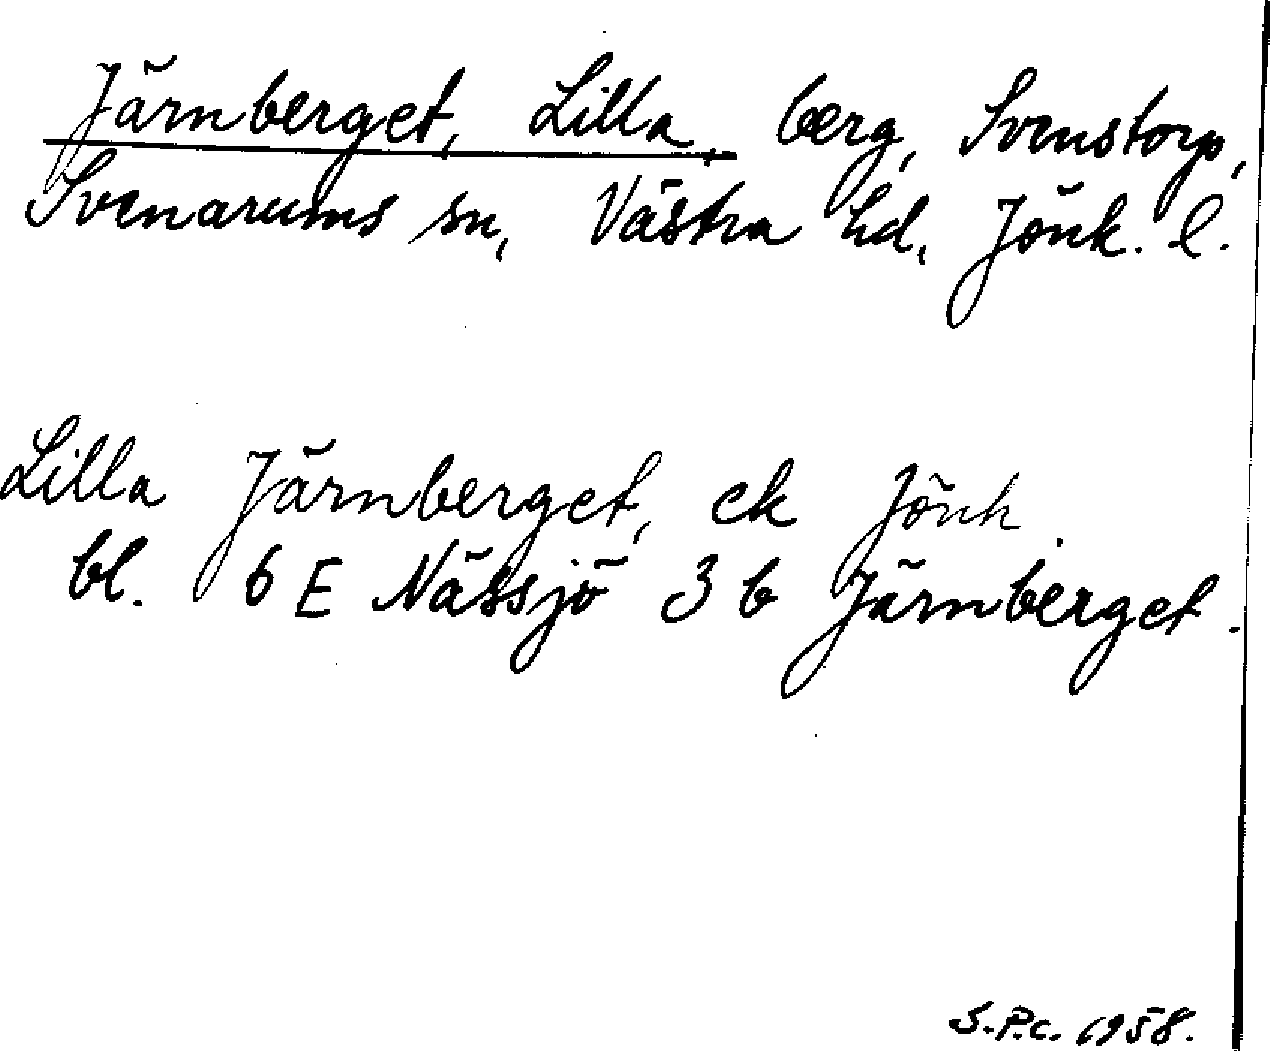 Järnberget, Lilla, berg, Svenstorp,
Svenarums sn, Västra hd, Jönk. l.
Lilla Järnberget, ek Jönk.
bl. 6E Nässjö 3b Järnberget.
S.P.c. 1958.